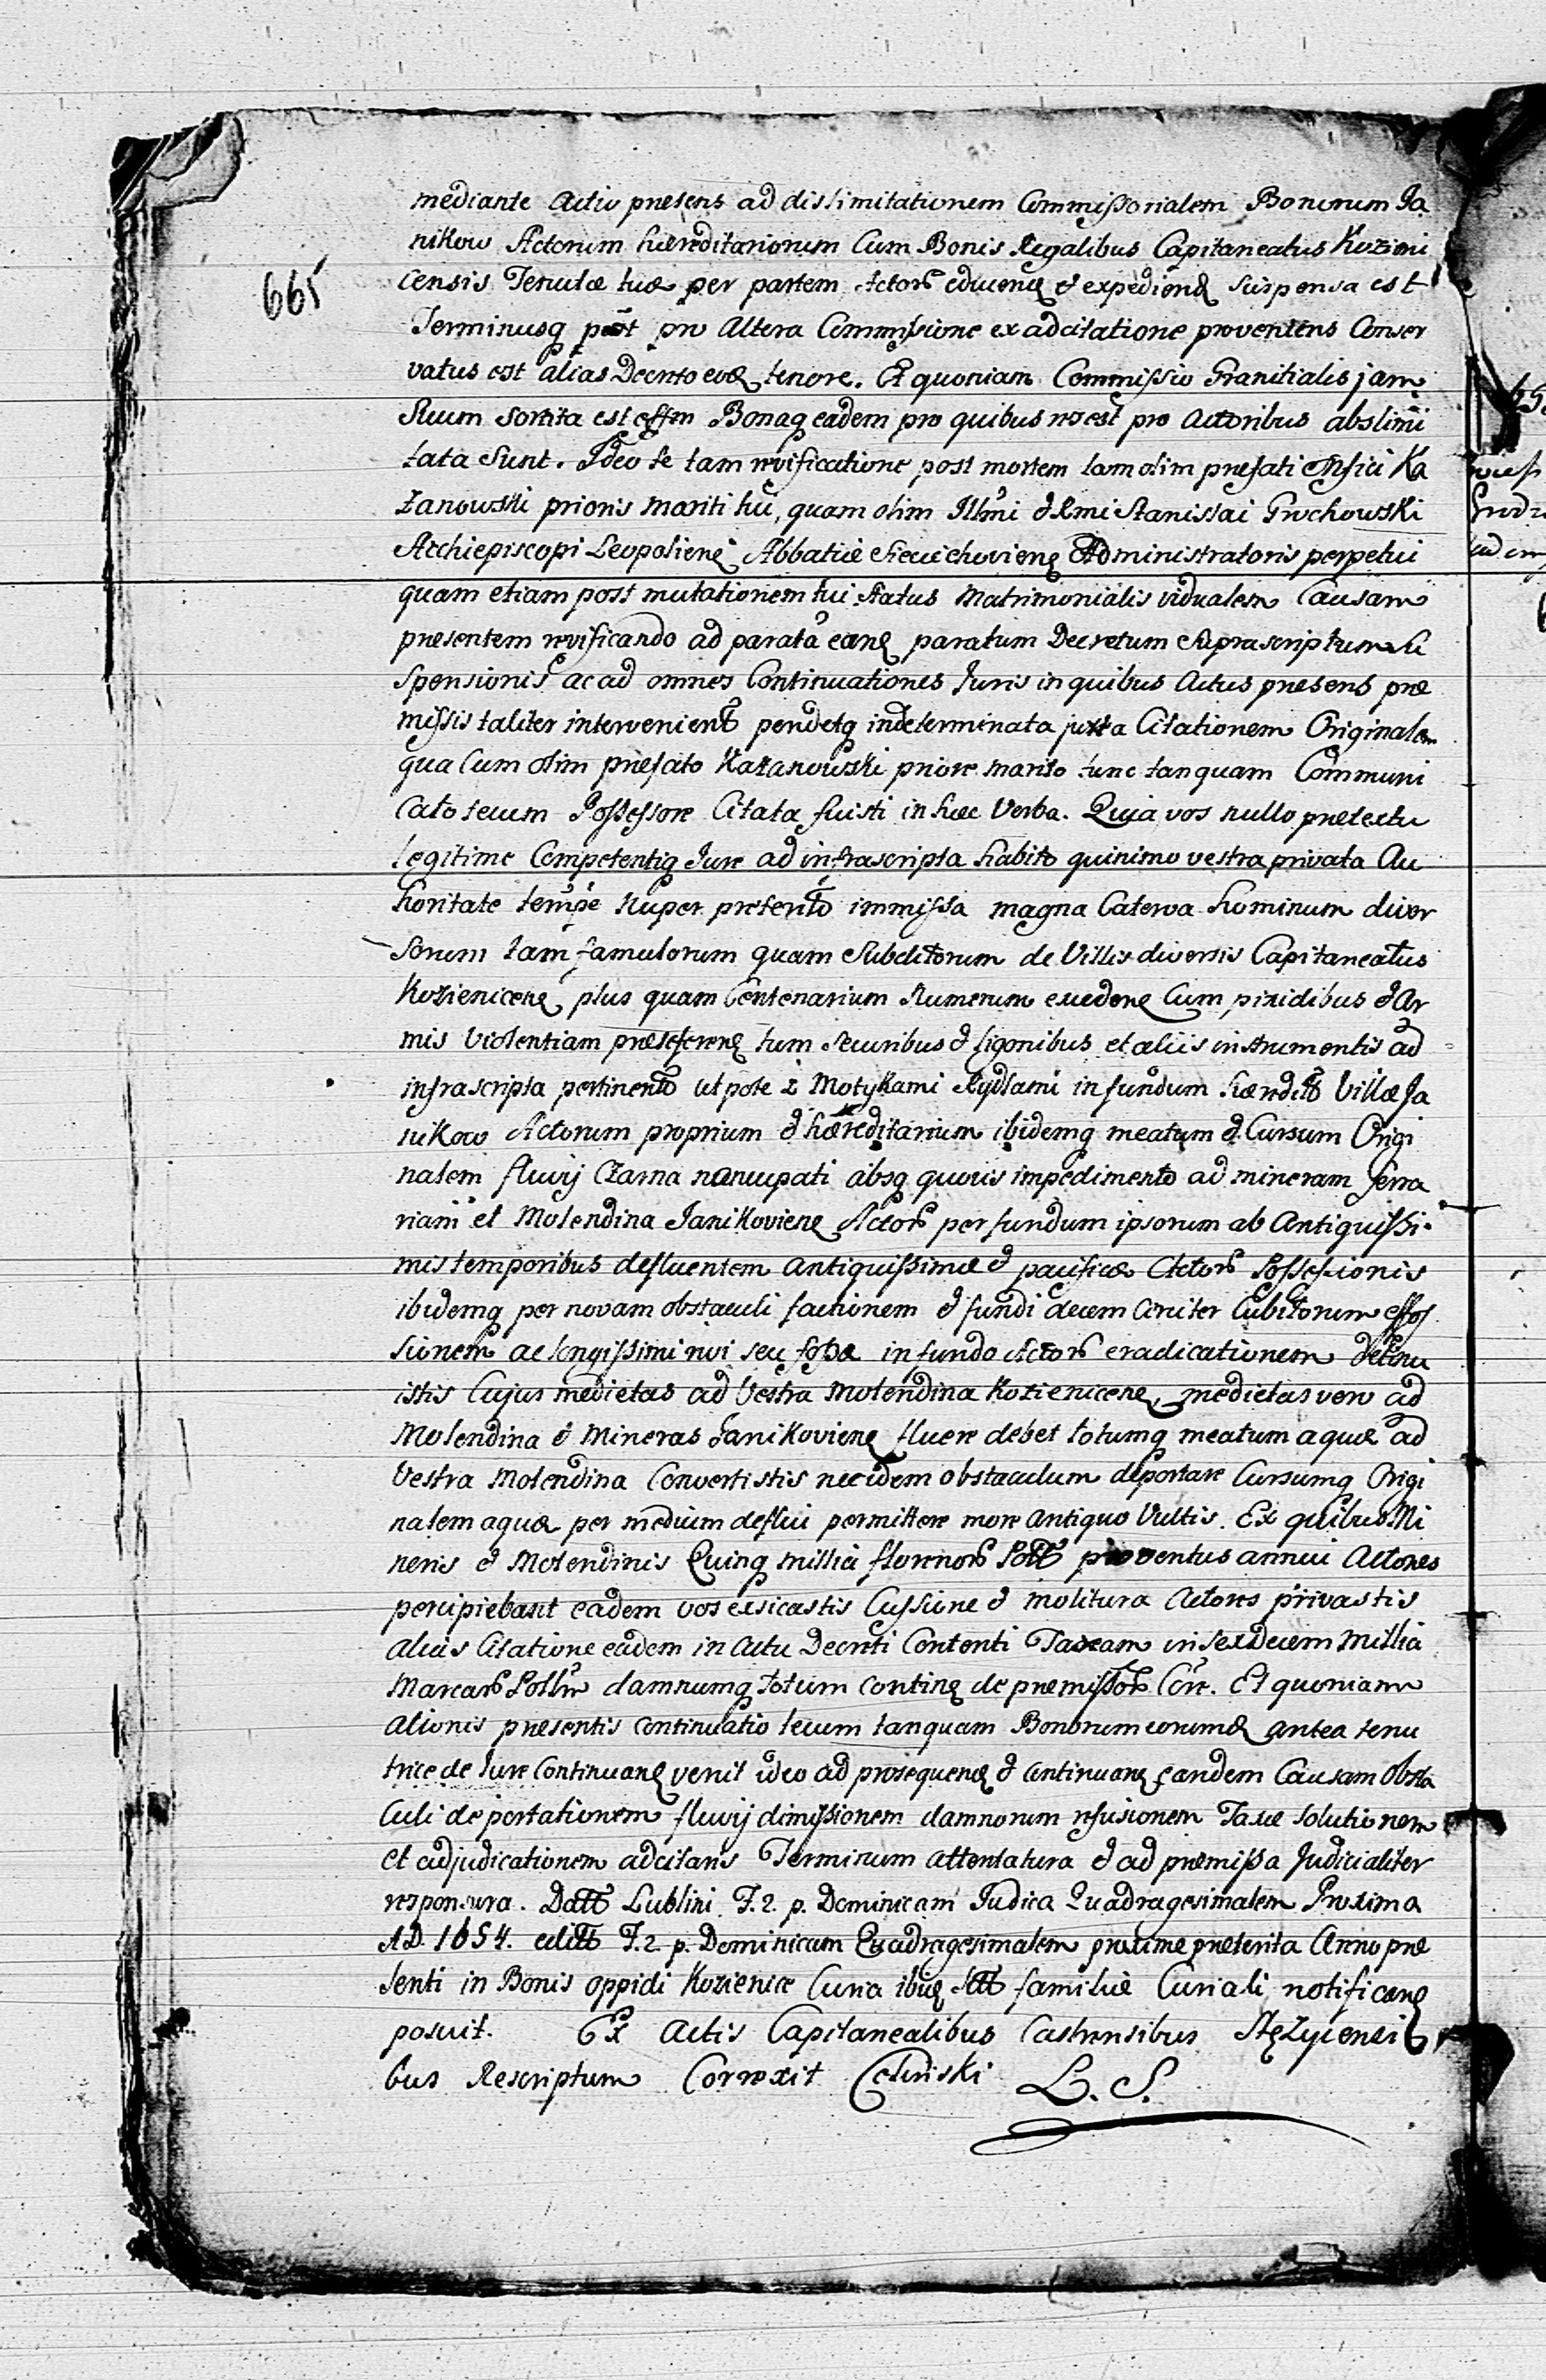 mediante Actio presens ad dislimitationem Commissorialem Bonorum Ja
nikow Actorum hæreditariorum Cum Bonis Regalibus Capitaneatus Kozieni
665
censis Tenutæ tuæ per partem Actorũ educenđ & expediend suspensa est
Terminusq pro Altera Commissione ex adcitatione proveniens Conser
vatus est alias Decreto eođ tenore. Et quoniam Commissio Granitialis jam
suum sortita est effm Bonaq eadem pro quibus pro Actoribus abslimi
tata sunt. Ideo te tam revificatione post mortem tam olim prefati Mfici Ka
zanowski prioris Mariti tui, quam olim Illmi & Rmi Stanislai Grochowski
Archiepiscopi Leopolien Abbatiæ Sieciechovien Administratoris perpetui
quam etiam post mutationem tui status Matrimonialis vidualem Causam
presentem revificando ad parata eanđ paratum Decretum suprascriptum Su
spensionis ac ad omnes Continuationes Juris in quibus Actus presens præ
missis taliter intervenient pendetq indeterminata juxta Citationem Originalem
qua Cum olim prefato Kazanowski priore marito tunc tanquam Communi
cato tecum Possessore Citata fuisti in hæc Verba. Quia vos nullo pretextu
legitime Competentiq Jure ad infrascripta habito quinimo vestra privata Au
thoritate tempe nuper preterito immissa magna Caterva hominum diver
sorum tam famulorum quam Subditorum de Villis diversis Capitaneatus
Kozienicen plus quam Centenarium Numerum exceden Cum pixidibus & Ar
mis Violentiam preseferen tum securibus & ligonibus et aliis instrumentis ad
infrascripta pertinen ut pote z Motykami Rydlami in fundum hæredit Villæ Ja
nikow Actorum proprium & hæreditarium ibidemq meatum & Cursum Origi
nalem fluvij Czarna nuncupati absq quovis impedimento ad mineram ferra
riam et Molendina Janikovien Actorũ per fundum ipsorum ab Antiquissi.
mis temporibus defluentem antiquissimæ & pacificæ Actorũ Possessionis
ibidemq per novam obstaculi factionem & fundi decem Circiter Cubitorum effos
sionem ac longissimi rivi seu fossæ in fundo Actorũ eradicationem detinu
istis Cujus medietas ad Vestra Molendina Koziénicen, medietas vero ad
Molendina & Mineras Janikovien fluere debet totumq meatum aquæ ad
Vestra Molendina Convertistis nec idem obstaculum deportare Cursumq Origi
nalem aquæ per medium deflui permittere more antiquo Vultis. Ex quibus Mi
neris & Molendinis Quinq millia florenorũ Poll proventus annui Actores
percipiebant eadem vos exsicastis Cussione & molitura Actores privastis
aliâs Citatione eadem in Actu Decreti Contenti Taxam in sexdecem millia
Marcarũ Pollm damnumq totum contine de premissorũ Cõre. Et quoniam
Actionis presentis continuatio tecum tanquam Bonorum eorumđ antea tenu
trice de Jure Continuanđ venit ideo ad prosequenđ & continuanđ eandem Causam obsta
culi deportationem fluvij dimissionem damnorum refusionem Taxæ solutionem
et adjudicationem adcitaris Terminum attentatura & ad premissa Judicialiter
responsura. Datt Lublini F. 2. p. Dominicam Judica Quadragesimalem Proxima
AD. 1654. edtt F. 2. p. Dominicam Quadragesimalem proxime preterita Anno præ
senti in Bonis oppidi Kozienice Curia ibiđ stt familiæ Curiali notificanđ
posuit. Ex Actis Capitanealibus Castrensibus Stężycensi
bus Rescriptum Correxit Celinski L. S.